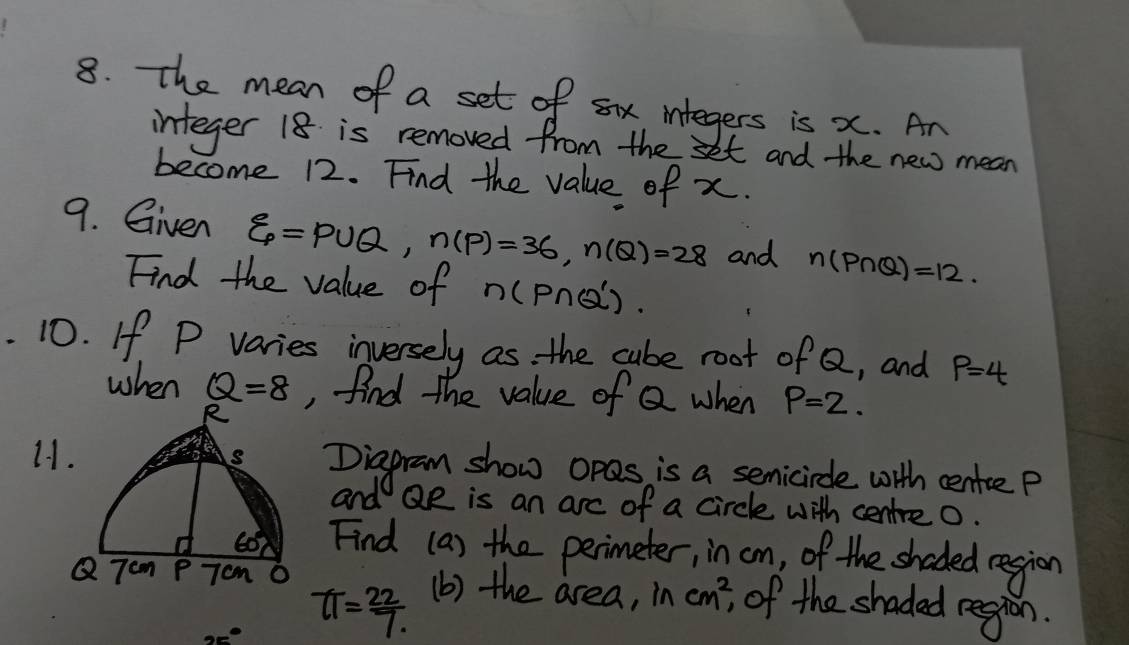 8. The mean of a set of six integers is x. An
integer 18 is removed from the set and the new mean
become 12. Find the value of x.
9. Given ξ = P∪Q, n(P)=36, n(Q)=28 and n(P∩Q)=12.
Find the value of n(P∩Q').
10. If P varies inversely as the cube root of Q, and P=4
when Q=8, find the value of Q when P=2.
11.
R
S
60°
Q 7cm P 7cm O
Diagram show OPQS is a semicircle with centre P
and QR is an arc of a circle with centre O.
Find (a) the perimeter, in cm, of the shaded region
(b) the area, in cm², of the shaded region.
π = 22/7.
25°